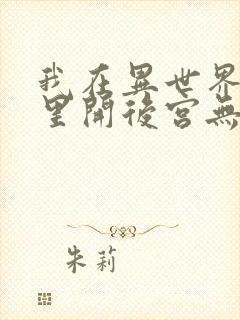 我在異世界
里開後宮無
朱莉